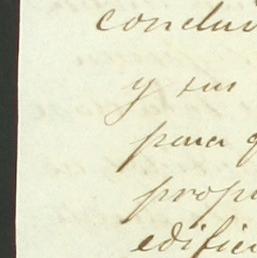 conclui
y sus
para q
prope
edifici